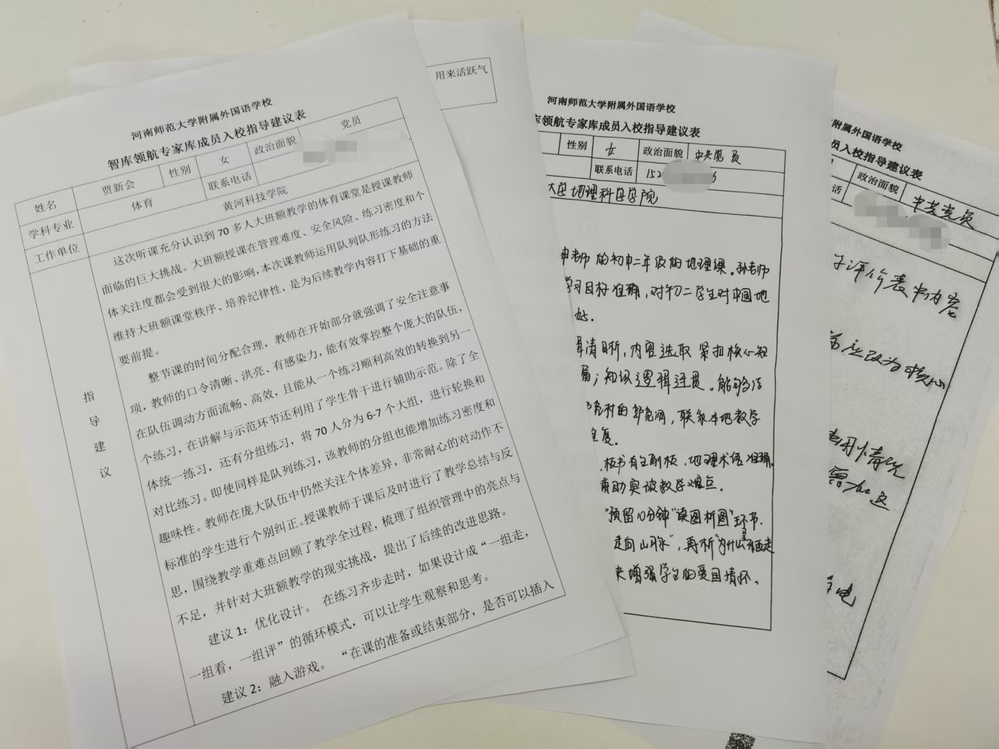 河南师范大学附属外国语学校
智库领航专家库成员入校指导建议表
姓名 贾新会 性别 女 政治面貌 党员
学科专业 体育 联系电话
工作单位 黄河科技学院
指导建议
这次听课充分认识到70多人大班额教学的体育课堂是授课教师
面临的巨大挑战。大班额授课在管理难度、安全风险、练习密度和个
体关注度都会受到很大的影响,本次课教师运用队列队形练习的方法
维持大班额课堂秩序、培养纪律性,是为后续教学内容打下基础的重
要前提。
整节课的时间分配合理,教师在开始部分就强调了安全注意事
项,教师的口令清晰、洪亮、有感染力,能有效掌控整个庞大的队伍,
在队伍调动方面流畅、高效,且能从一个练习顺利高效的转换到另一
个练习,在讲解与示范环节还利用了学生骨干进行辅助示范。除了全
体统一练习,还有分组练习,将70人分为6-7个大组,进行轮换和
对比练习。即使同样是队列练习,该教师的分组也能增加练习密度和
趣味性。教师在庞大队伍中仍然关注个体差异,非常耐心的对动作不
标准的学生进行个别纠正。授课教师于课后及时进行了教学总结与反
思,围绕教学重难点回顾了教学全过程,梳理了组织管理中的亮点与
不足,并针对大班额教学的现实挑战,提出了后续的改进思路。
建议1:优化设计。 在练习齐步走时,如果设计成“一组走,
一组看,一组评”的循环模式,可以让学生观察和思考。
建议2:融入游戏。 “在课的准备或结束部分,是否可以插入
用来活跃气
河南师范大学附属外国语学校
库领航专家库成员入校指导建议表
性别 女 政治面貌 中共党员
联系电话 152
大学地理科学学院
申老师的初中二年级的地理课。孙老师
学习目标准确,对初二学生对中国地
处.
清晰,内容选取紧扣核心知
识;知识逻辑连贯。能够
的郭亮洞,联系本地教学
板书有主副板,地理术语准确,
辅助突破教学难点.
“预留10分钟“读图析图”环节.
走向山脉”,再析“为什么
来增强学生的爱国情怀。
附属外国语学校
成员入校指导建议表
政治面貌 中共党员
话
评价表中内容
应改为核心